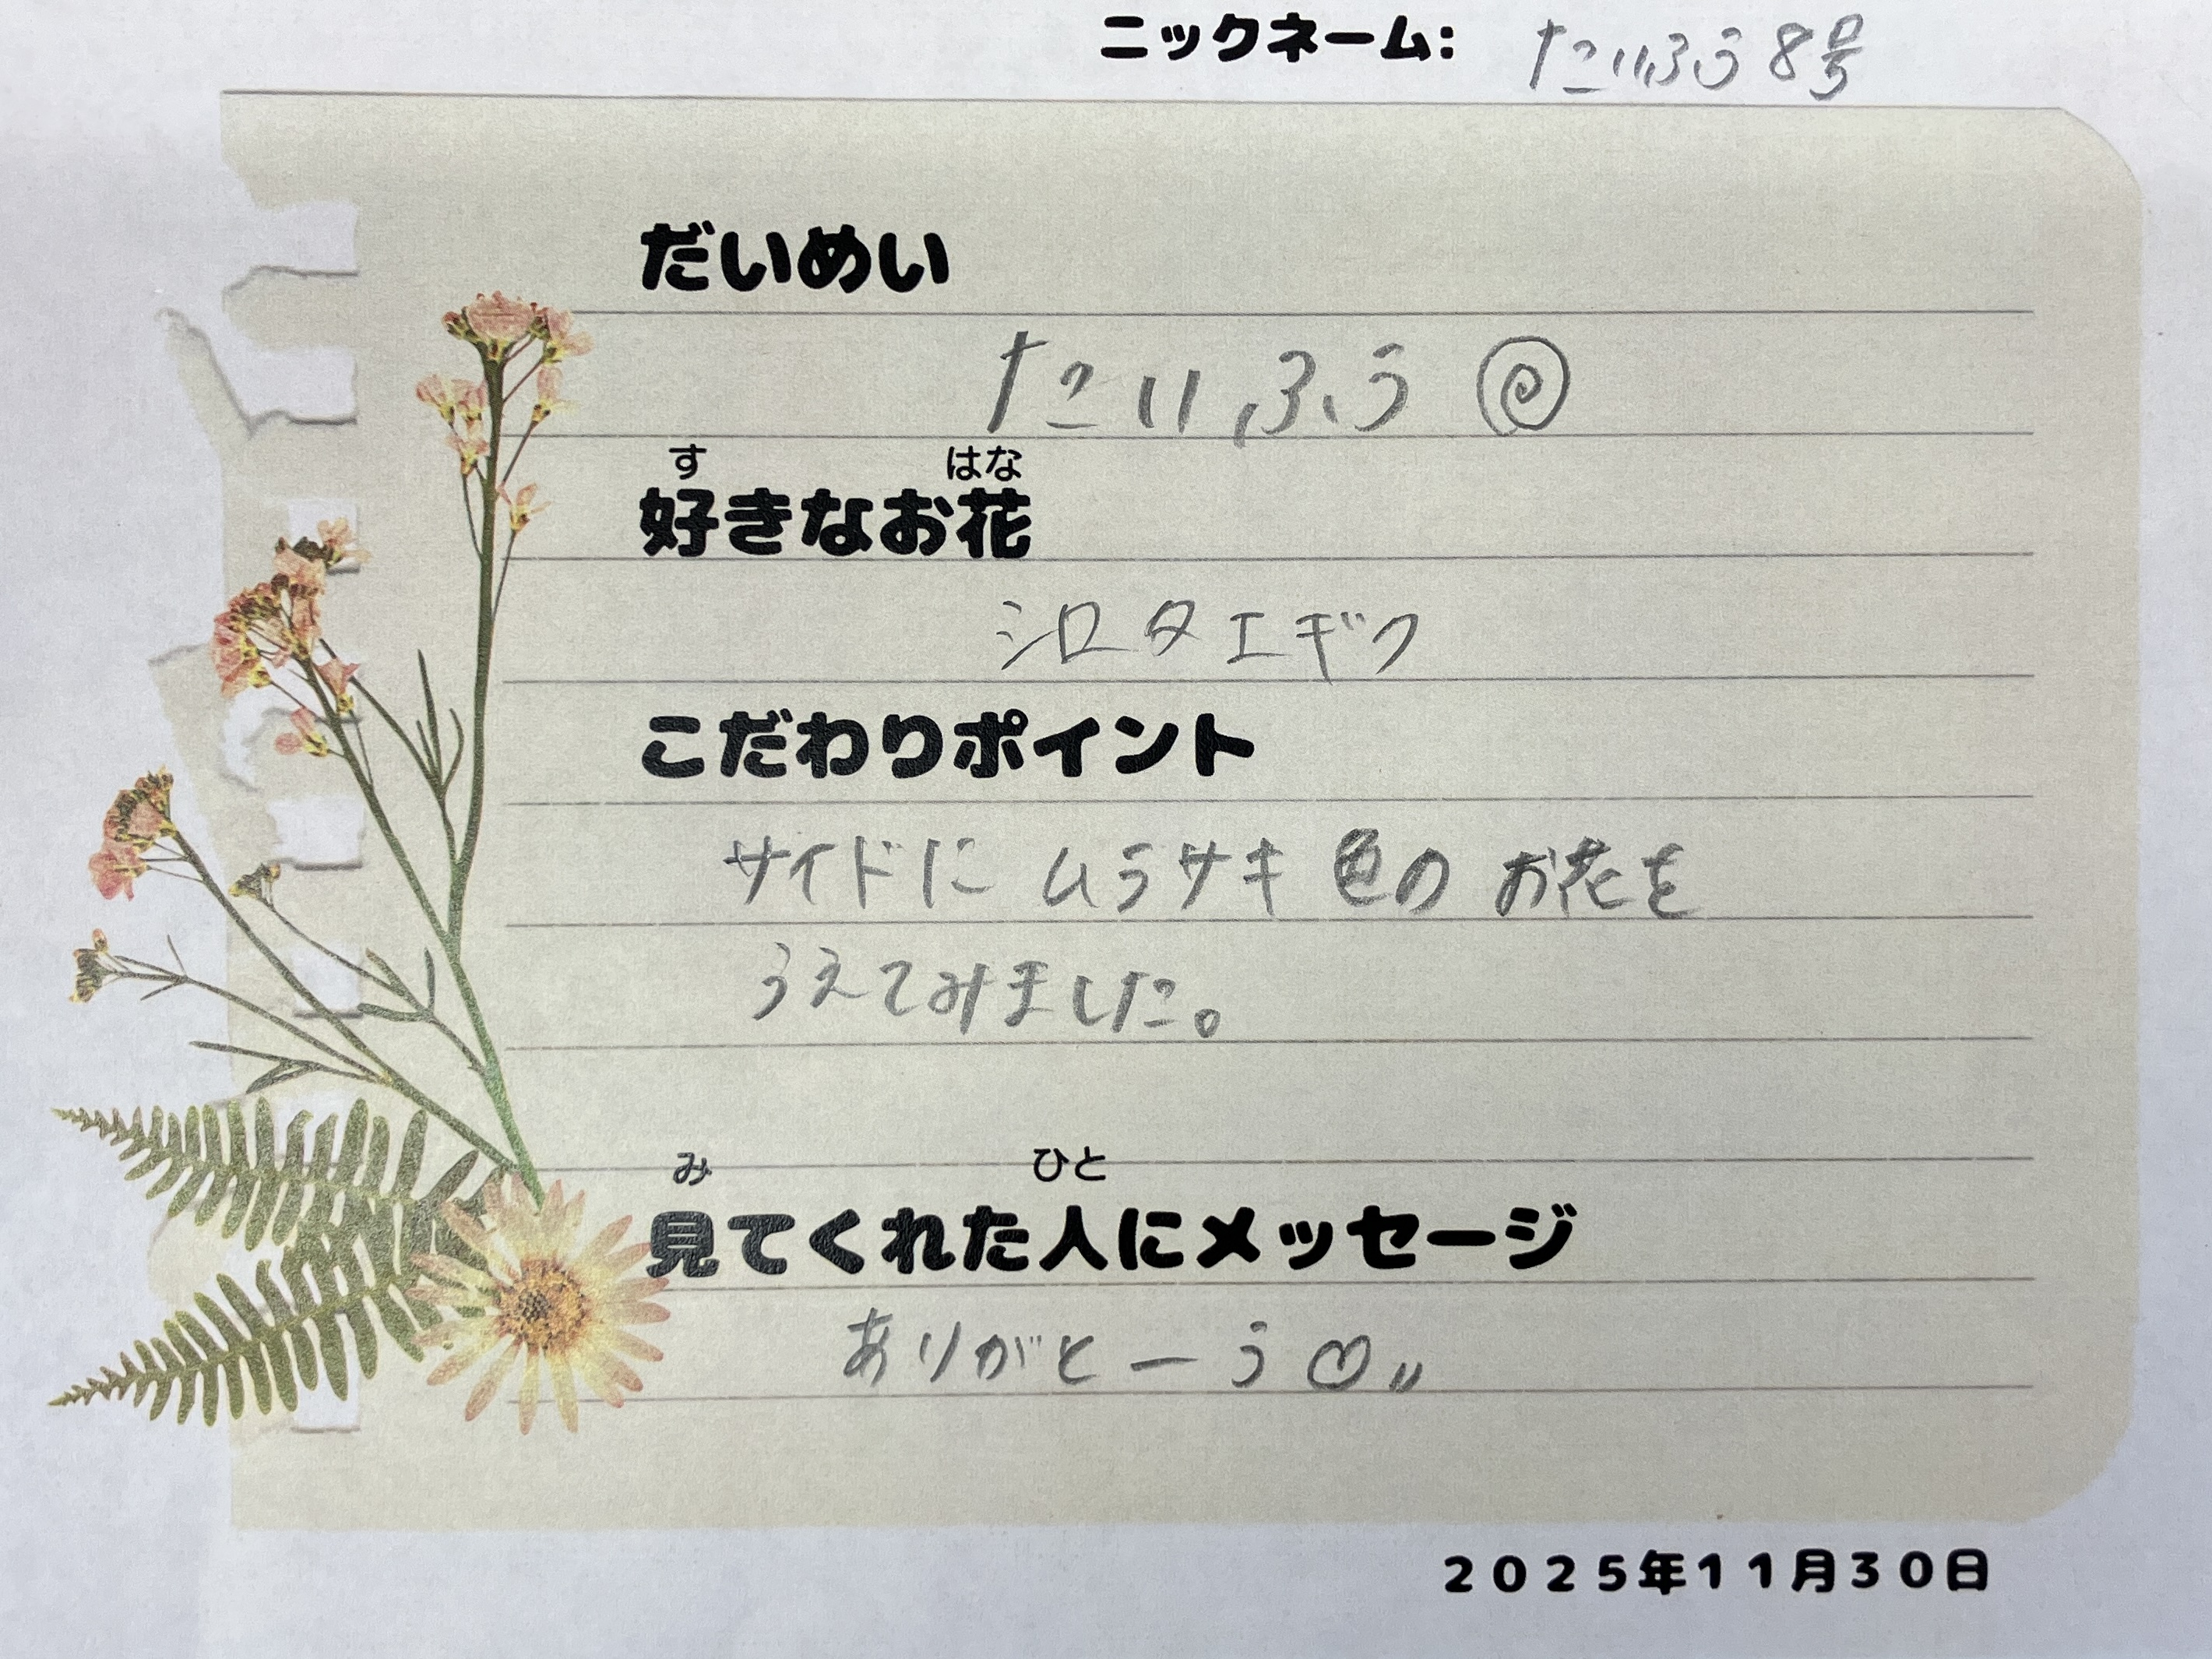 ニックネーム: たいふう8号
だいめい
たいふう
す はな
好きなお花
シロタエギク
こだわりポイント
サイドに ムラサキ 色の お花を
うえてみました。
み ひと
見てくれた人にメッセージ
ありがとーう♡〃
2025年11月30日